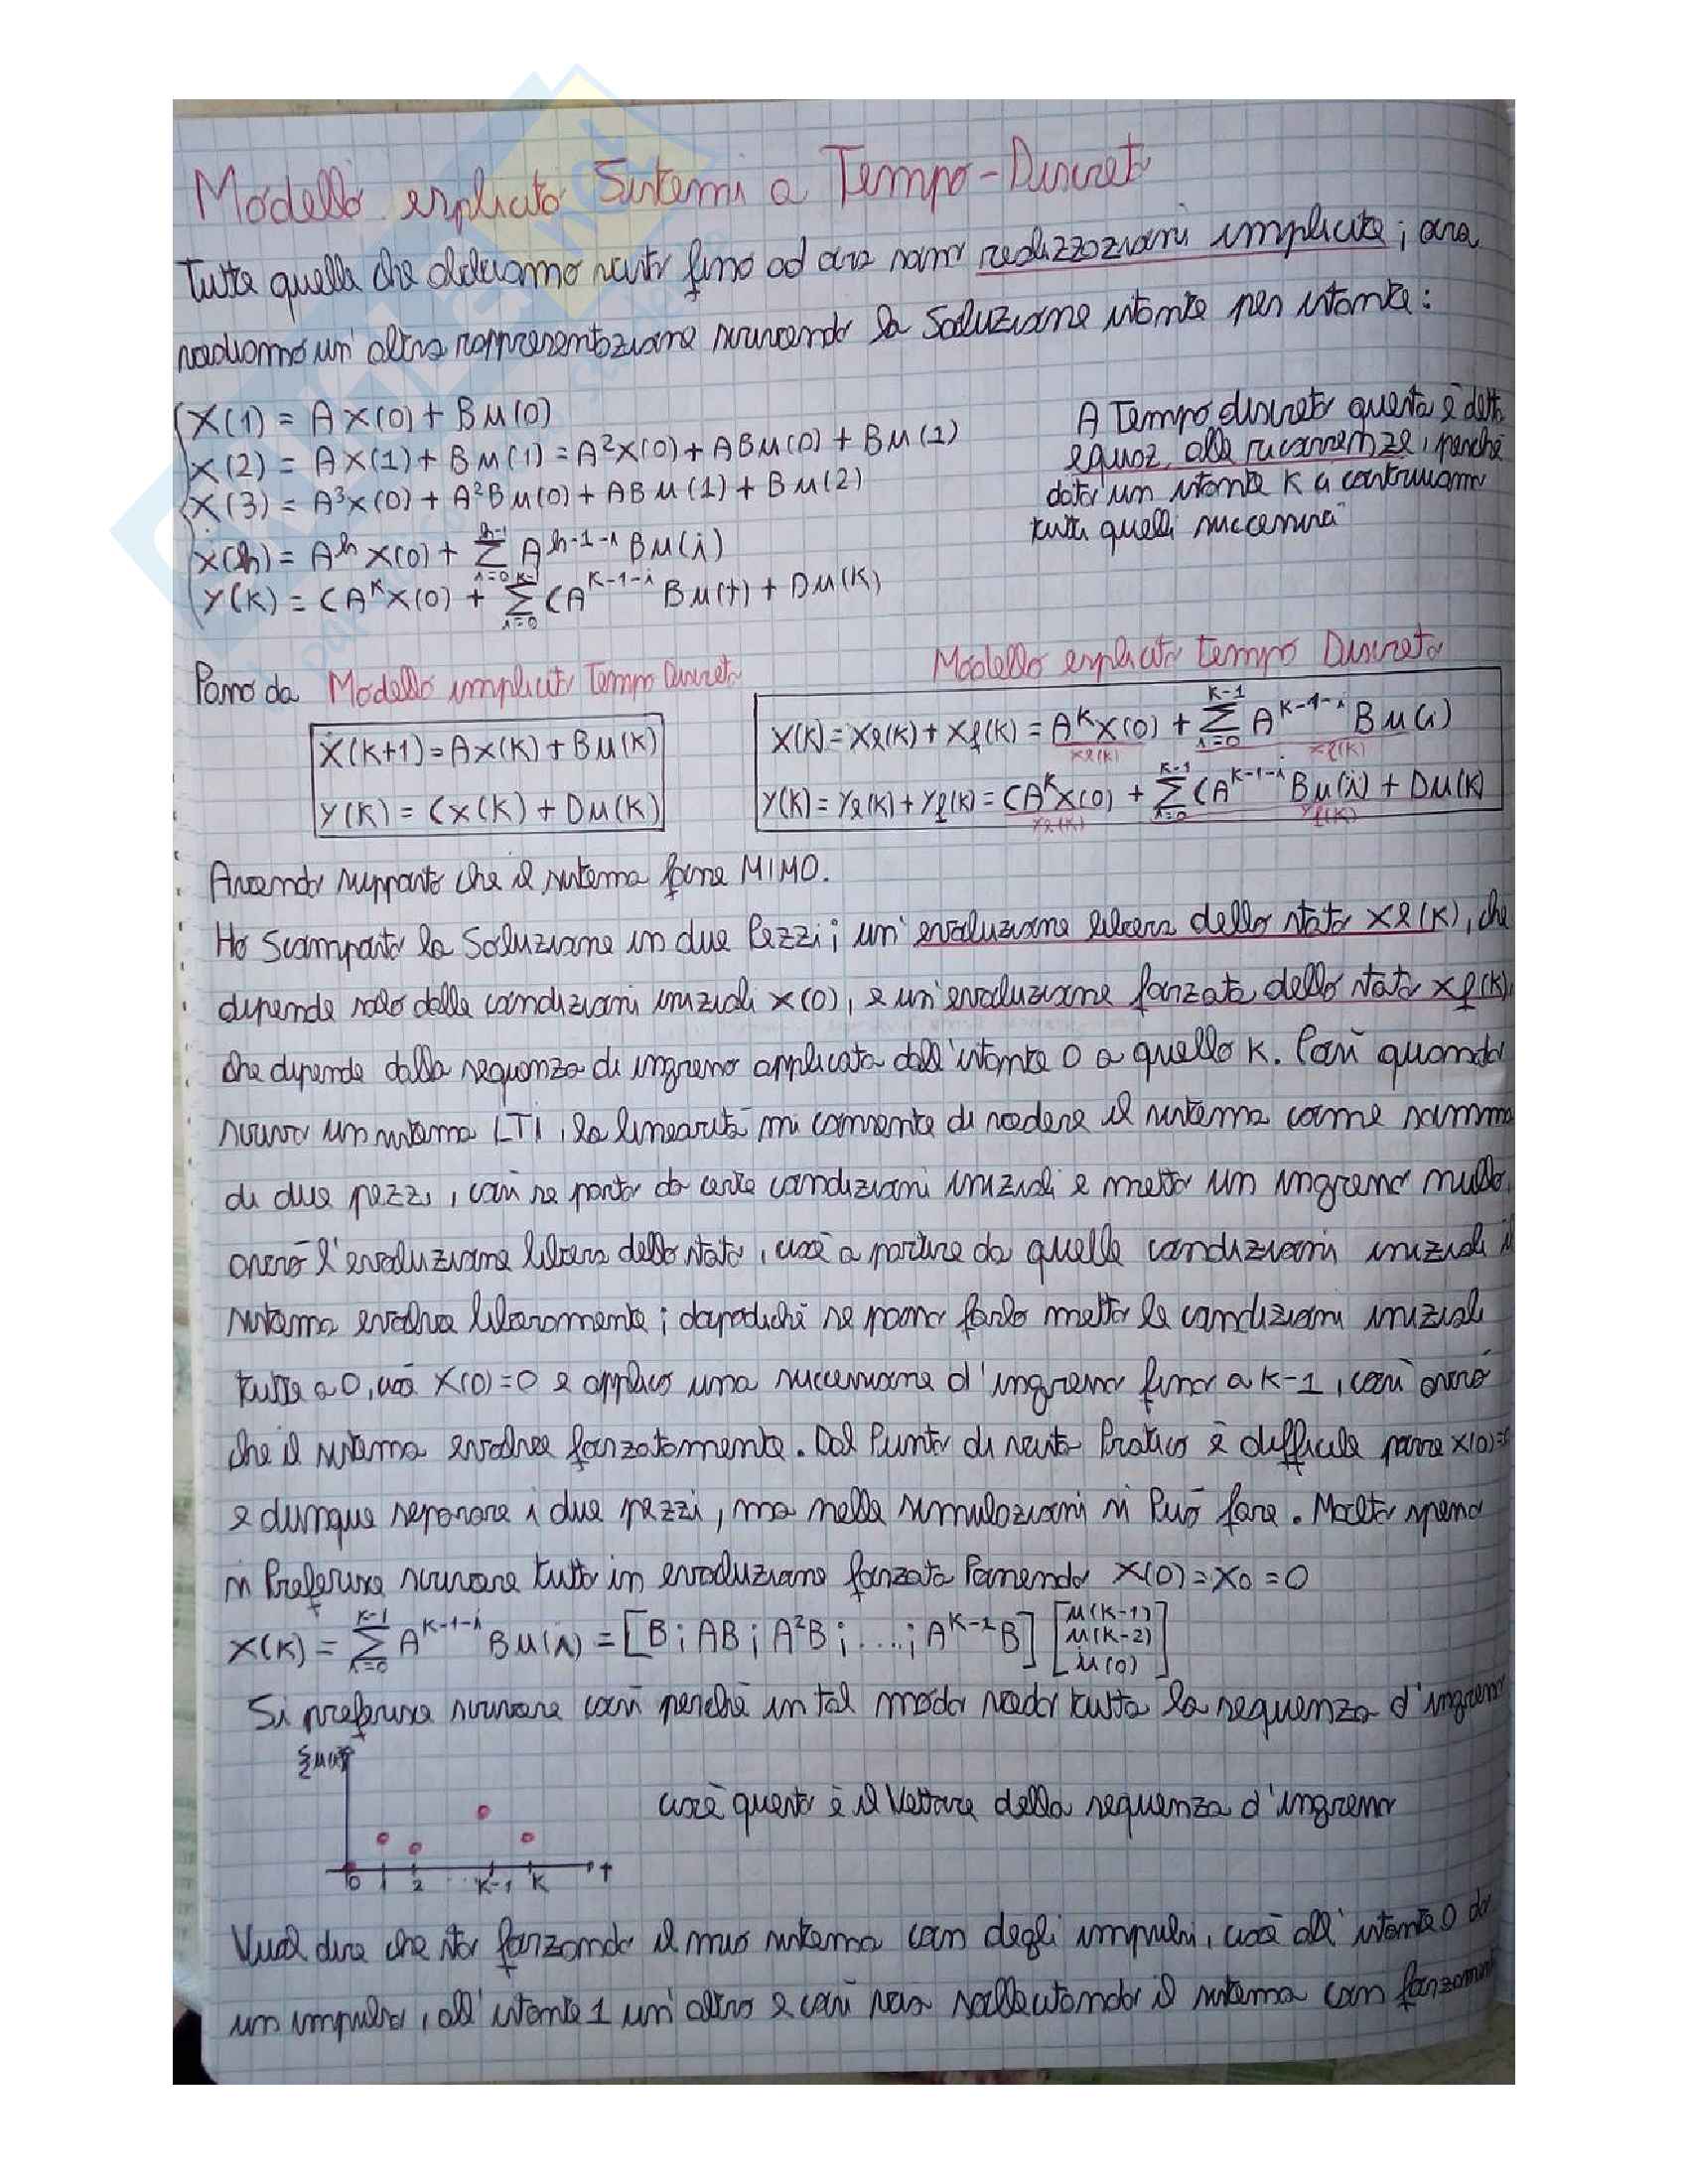 Modello esplicito Sistemi a Tempo-Discreto
Tutte quelle che abbiamo visto fino ad ora sono realizzazioni implicite; ora
vediamo un'altra rappresentazione scrivendo la Soluzione istante per istante:
X(1) = AX(0) + Bu(0)
X(2) = AX(1) + Bu(1) = A²X(0) + ABu(0) + Bu(1)
X(3) = A³X(0) + A²Bu(0) + ABu(1) + Bu(2)
X(h) = A^h X(0) + Σ_{i=0}^{h-1} A^{h-1-i} Bu(i)
Y(K) = CA^K X(0) + Σ_{i=0}^{K-1} CA^{K-1-i} Bu(i) + Du(K)
A Tempo discreto questa è detta
equaz. alle ricorrenze, perché
dato un istante K ci costruiamo
tutti quelli successivi
Passo da Modello implicito Tempo Discreto
X(K+1) = AX(K) + Bu(K)
Y(K) = CX(K) + Du(K)
Modello esplicito tempo Discreto
X(K) = Xl(K) + Xf(K) = A^K X(0) + Σ_{i=0}^{K-1} A^{K-1-i} Bu(i)
Xl(K) Xf(K)
Y(K) = Yl(K) + Yf(K) = CA^K X(0) + Σ_{i=0}^{K-1} CA^{K-1-i} Bu(i) + Du(K)
Yl(K) Yf(K)
Avendo supposto che il sistema fosse MIMO.
Ho Scomposto la Soluzione in due Pezzi; un'evoluzione libera dello stato Xl(K), che
dipende solo dalle condizioni iniziali X(0), e un'evoluzione forzata dello stato Xf(K),
che dipende dalla sequenza di ingresso applicata dall'istante 0 a quello K. Così quando
scrivo un sistema LTI, la linearità mi consente di vedere il sistema come somma
di due pezzi, così se parto da certe condizioni iniziali e metto un ingresso nullo,
avrò l'evoluzione libera dello stato, cioè a partire da quelle condizioni iniziali il
sistema evolve liberamente; dopodiché se posso farlo metto le condizioni iniziali
tutte a 0, cioè X(0)=0 e applico una successione d'ingresso fino a K-1, così avrò
che il sistema evolve forzatamente. Dal Punto di vista Pratico è difficile porre X(0)=0
e dunque separare i due pezzi, ma nelle simulazioni si Può fare. Molto spesso
si Preferisce scrivere tutto in evoluzione forzata Ponendo X(0)=X0=0
X(K) = Σ_{i=0}^{K-1} A^{K-1-i} Bu(i) = [B ¦ AB ¦ A²B ¦ .... ¦ A^{K-1}B] [u(K-1) u(K-2) ⋮ u(0)]
Si preferisce scrivere così perché in tal modo vedo tutta la sequenza d'ingresso
0 1 2 ... K-1 K t
cioè questo è il Vettore della sequenza d'ingresso
Vuol dire che sto forzando il mio sistema con degli impulsi, cioè all'istante 0 do
un impulso, all'istante 1 un altro e così via sollecitando il sistema con